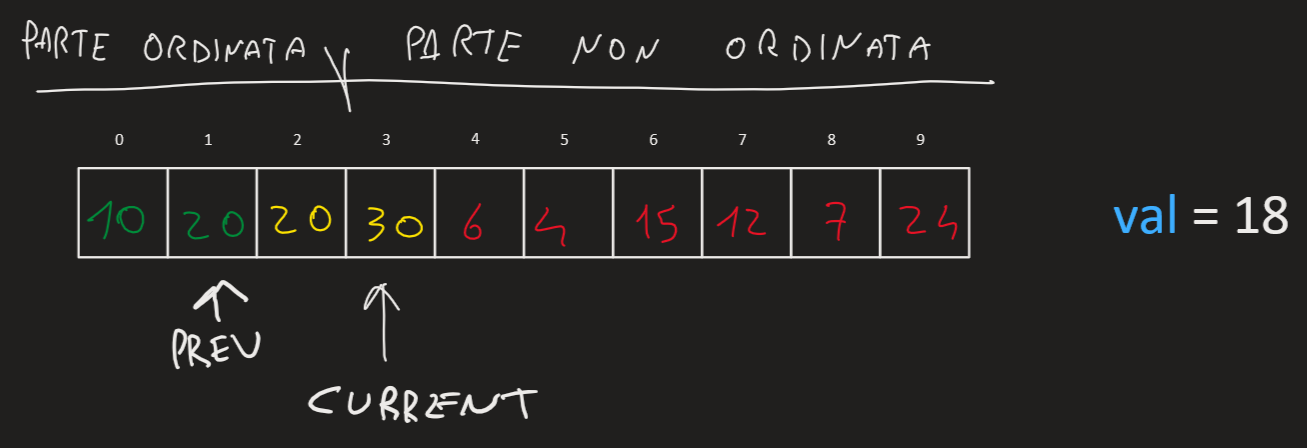 PARTE ORDINATA PARTE NON ORDINATA
0 1 2 3 4 5 6 7 8 9
10 20 20 30 6 4 15 12 7 24
val = 18
PREV
CURRENT